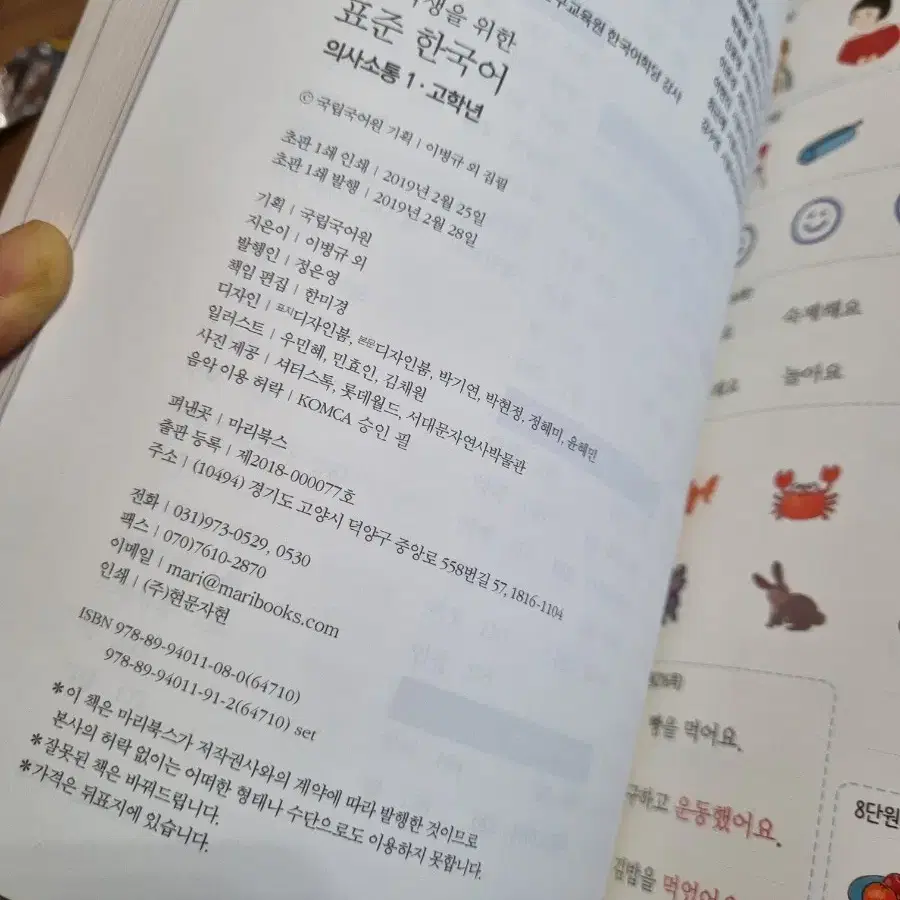 생을 위한
표준 한국어
의사소통 1·고학년
ⓒ 국립국어원 기획 | 이병규 외 집필
초판 1쇄 인쇄 | 2019년 2월 25일
초판 1쇄 발행 | 2019년 2월 28일
기획 | 국립국어원
지은이 | 이병규 외
발행인 | 정은영
책임 편집 | 한미경
디자인 | 표지디자인붐, 본문디자인붐, 박기연, 박현정, 정혜미, 윤혜민
일러스트 | 우민혜, 민효인, 김채원
사진 제공 | 셔터스톡, 롯데월드, 서대문자연사박물관
음악 이용 허락 | KOMCA 승인 필
펴낸곳 | 마리북스
출판 등록 | 제2018-000077호
주소 | (10494) 경기도 고양시 덕양구 중앙로 558번길 57, 1816-1104
전화 | 031)973-0529, 0530
팩스 | 070)7610-2870
이메일 | mari@maribooks.com
인쇄 | (주)현문자현
ISBN 978-89-94011-08-0(64710)
978-89-94011-91-2(64710) set
*이 책은 마리북스가 저작권사와의 계약에 따라 발행한 것이므로
본사의 허락 없이는 어떠한 형태나 수단으로도 이용하지 못합니다.
*잘못된 책은 바꿔드립니다.
*가격은 뒤표지에 있습니다.
한국어학당 강사
숙제해요
놀아요
빵을 먹어요.
구하고 운동했어요.
김밥을 먹었어
8단원